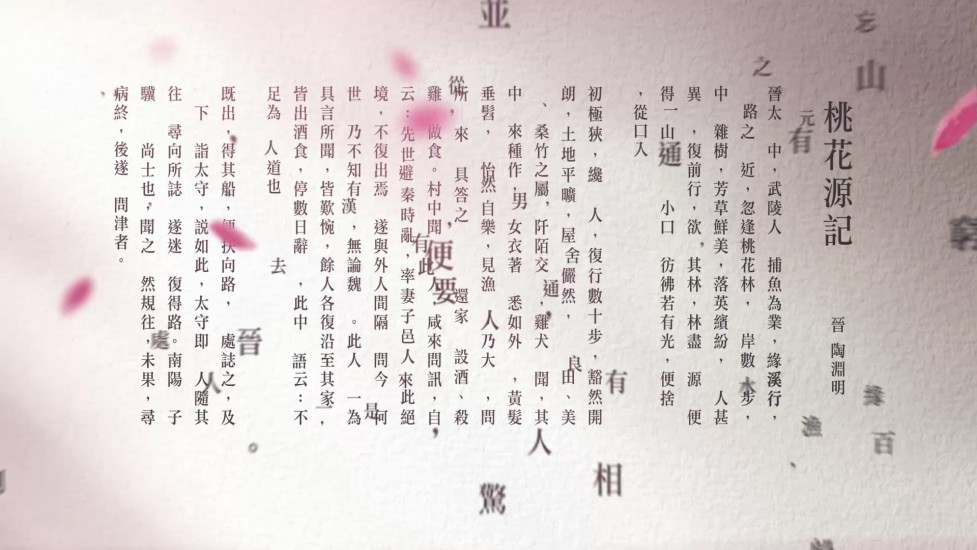 桃花源記
晉 陶淵明
晉太 中，武陵人 捕魚為業，緣溪行，
路之 近，忽逢桃花林， 岸數 步，
中 雜樹，芳草鮮美，落英繽紛， 人甚
異 ，復前行，欲 其林，林盡 源 便
得一山 小口 彷彿若有光，便捨
，從口入
初極狹，纔 人，復行數十步，豁然開
朗，土地平曠，屋舍儼然， 良田、美
、桑竹之屬，阡陌交 ，雞犬 聞，其
中 來種作， 女衣著 悉如外 ，黃髮
垂髫， 怡然自樂，見漁人乃大 ，問
所 來 具答之 還家 設酒、殺
雞 做食。村中聞 人，咸來問訊，自
云：先世避秦時亂，率妻子邑人 來此絕
境，不復出焉 遂與外人間隔 問今 何
世 乃不知有 ，無論魏 。此人 一為
具言所聞，皆歎惋，餘人各復沿至其家，
皆出酒食，停數日辭 ，此中 語云：不
足為 人道也
既出，得其船，便扶向路， 處誌之，及
下 詣太守，説如此，太守即 人隨其
往 尋向所誌 遂迷 復得路。南陽 子
驥 尚士也，聞之 然規往，未果，尋
病終，後遂 問津者。
並
忘
山
之
元
有
通
從
男
漢
有
此
便
要
去
通
晉
處
人
是
一
有
人
水
漁
百
相
驚
窮